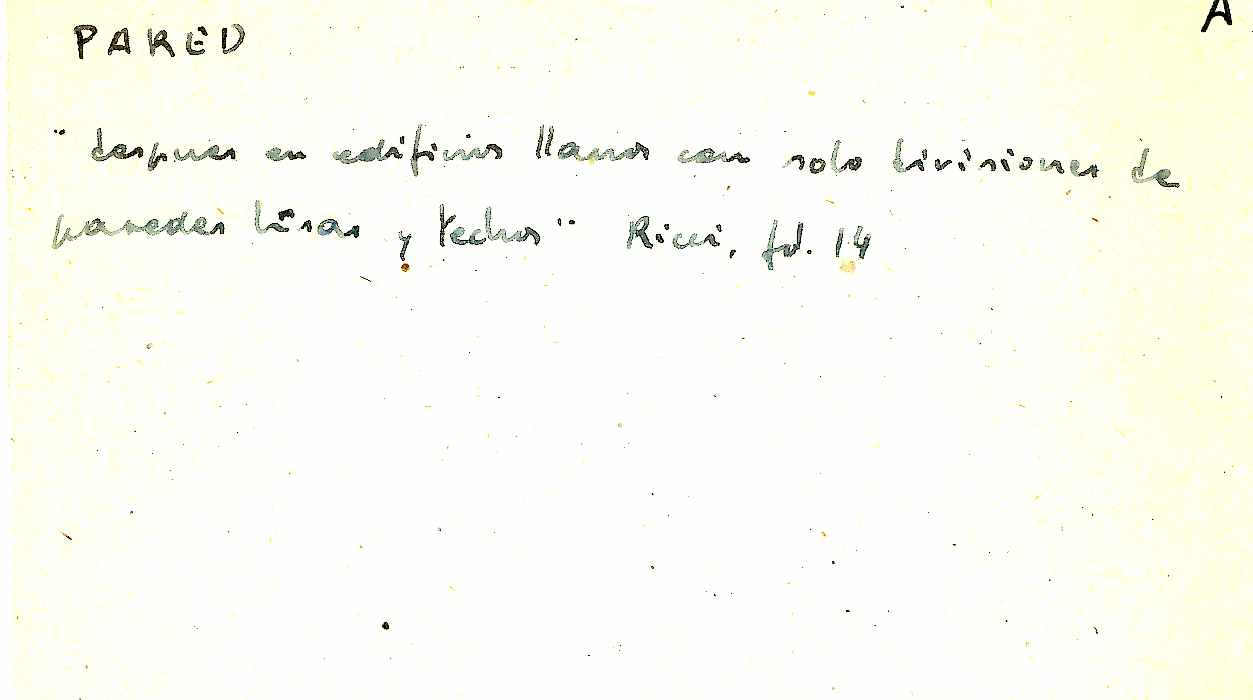 A
PARED
"despues en edificios llanos con solo divisiones de
paredes lisas y techos" Ricci, fol. 14